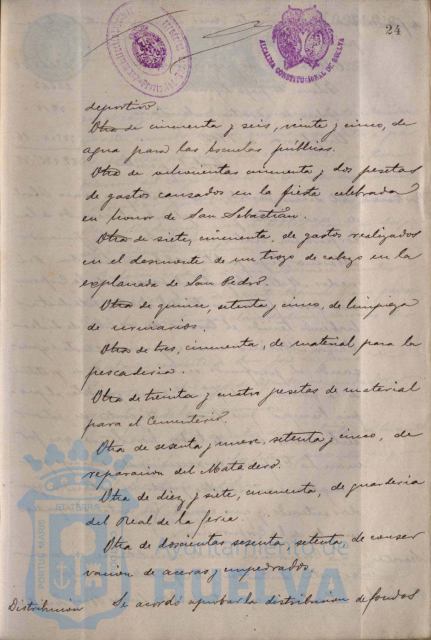 24
ALCALDIA CONSTITUCIONAL DE HUELVA
deportivo.
Otra de cincuenta y seis, veinte y cinco, de
agua para las Escuelas públicas.
Otra de ochocientas cincuenta y dos pesetas
de gastos causados en la fiesta celebrada
en honor de San Sebastián.
Otra de siete, cincuenta, de gastos realizados
en el desmonte de un trozo de cabezo en la
explanada de San Pedro.
Otra de quince, setenta y cinco, de limpieza
de urinarios.
Otra de tres, cincuenta, de material para la
pescaderia.
Otra de treinta y cuatro pesetas de material
para el Cementerio.
Otra de sesenta y nueve, setenta y cinco, de
reparacion del Matadero.
Otra de diez y siete, cincuenta, de guarderia
del Real de la feria.
Otra de doscientas sesenta, setenta, de conser
vacion de aceras y empedrados.
Distribucion Se acordó aprobar la distribucion de fondos
PORTUS MARIS
ET TERRÆ
Ayuntamiento de
HUELVA